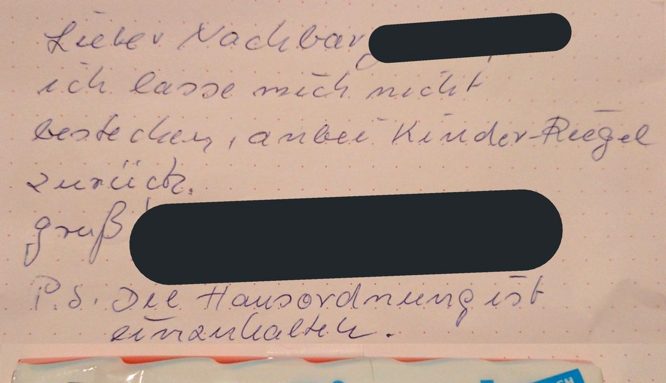 Lieber Nachbar
ich lasse mich nicht
bestechen, anbei Kinder-Riegel
zurück.
gruß
P.S. Die Hausordnung ist
einzuhalten.